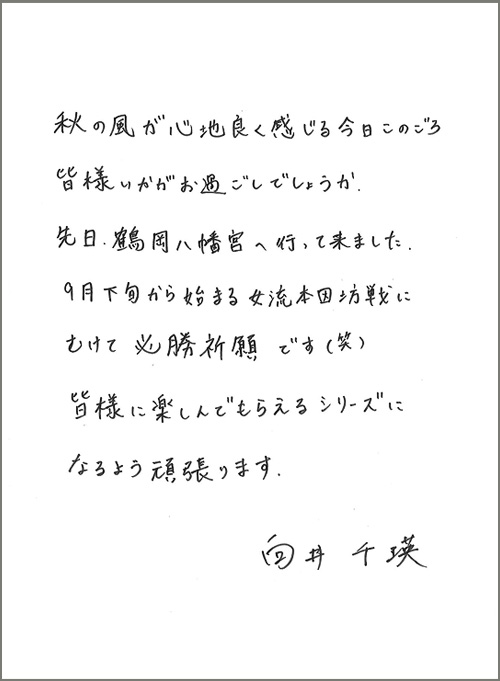 秋の風が心地良く感じる今日このごろ
皆様いかがお過ごしでしょうか.
先日.鶴岡八幡宮へ行って来ました.
9月下旬から始まる女流本因坊戦に
むけて必勝祈願です(笑)
皆様に楽しんでもらえるシリーズに
なるよう頑張ります.
向井 千瑛